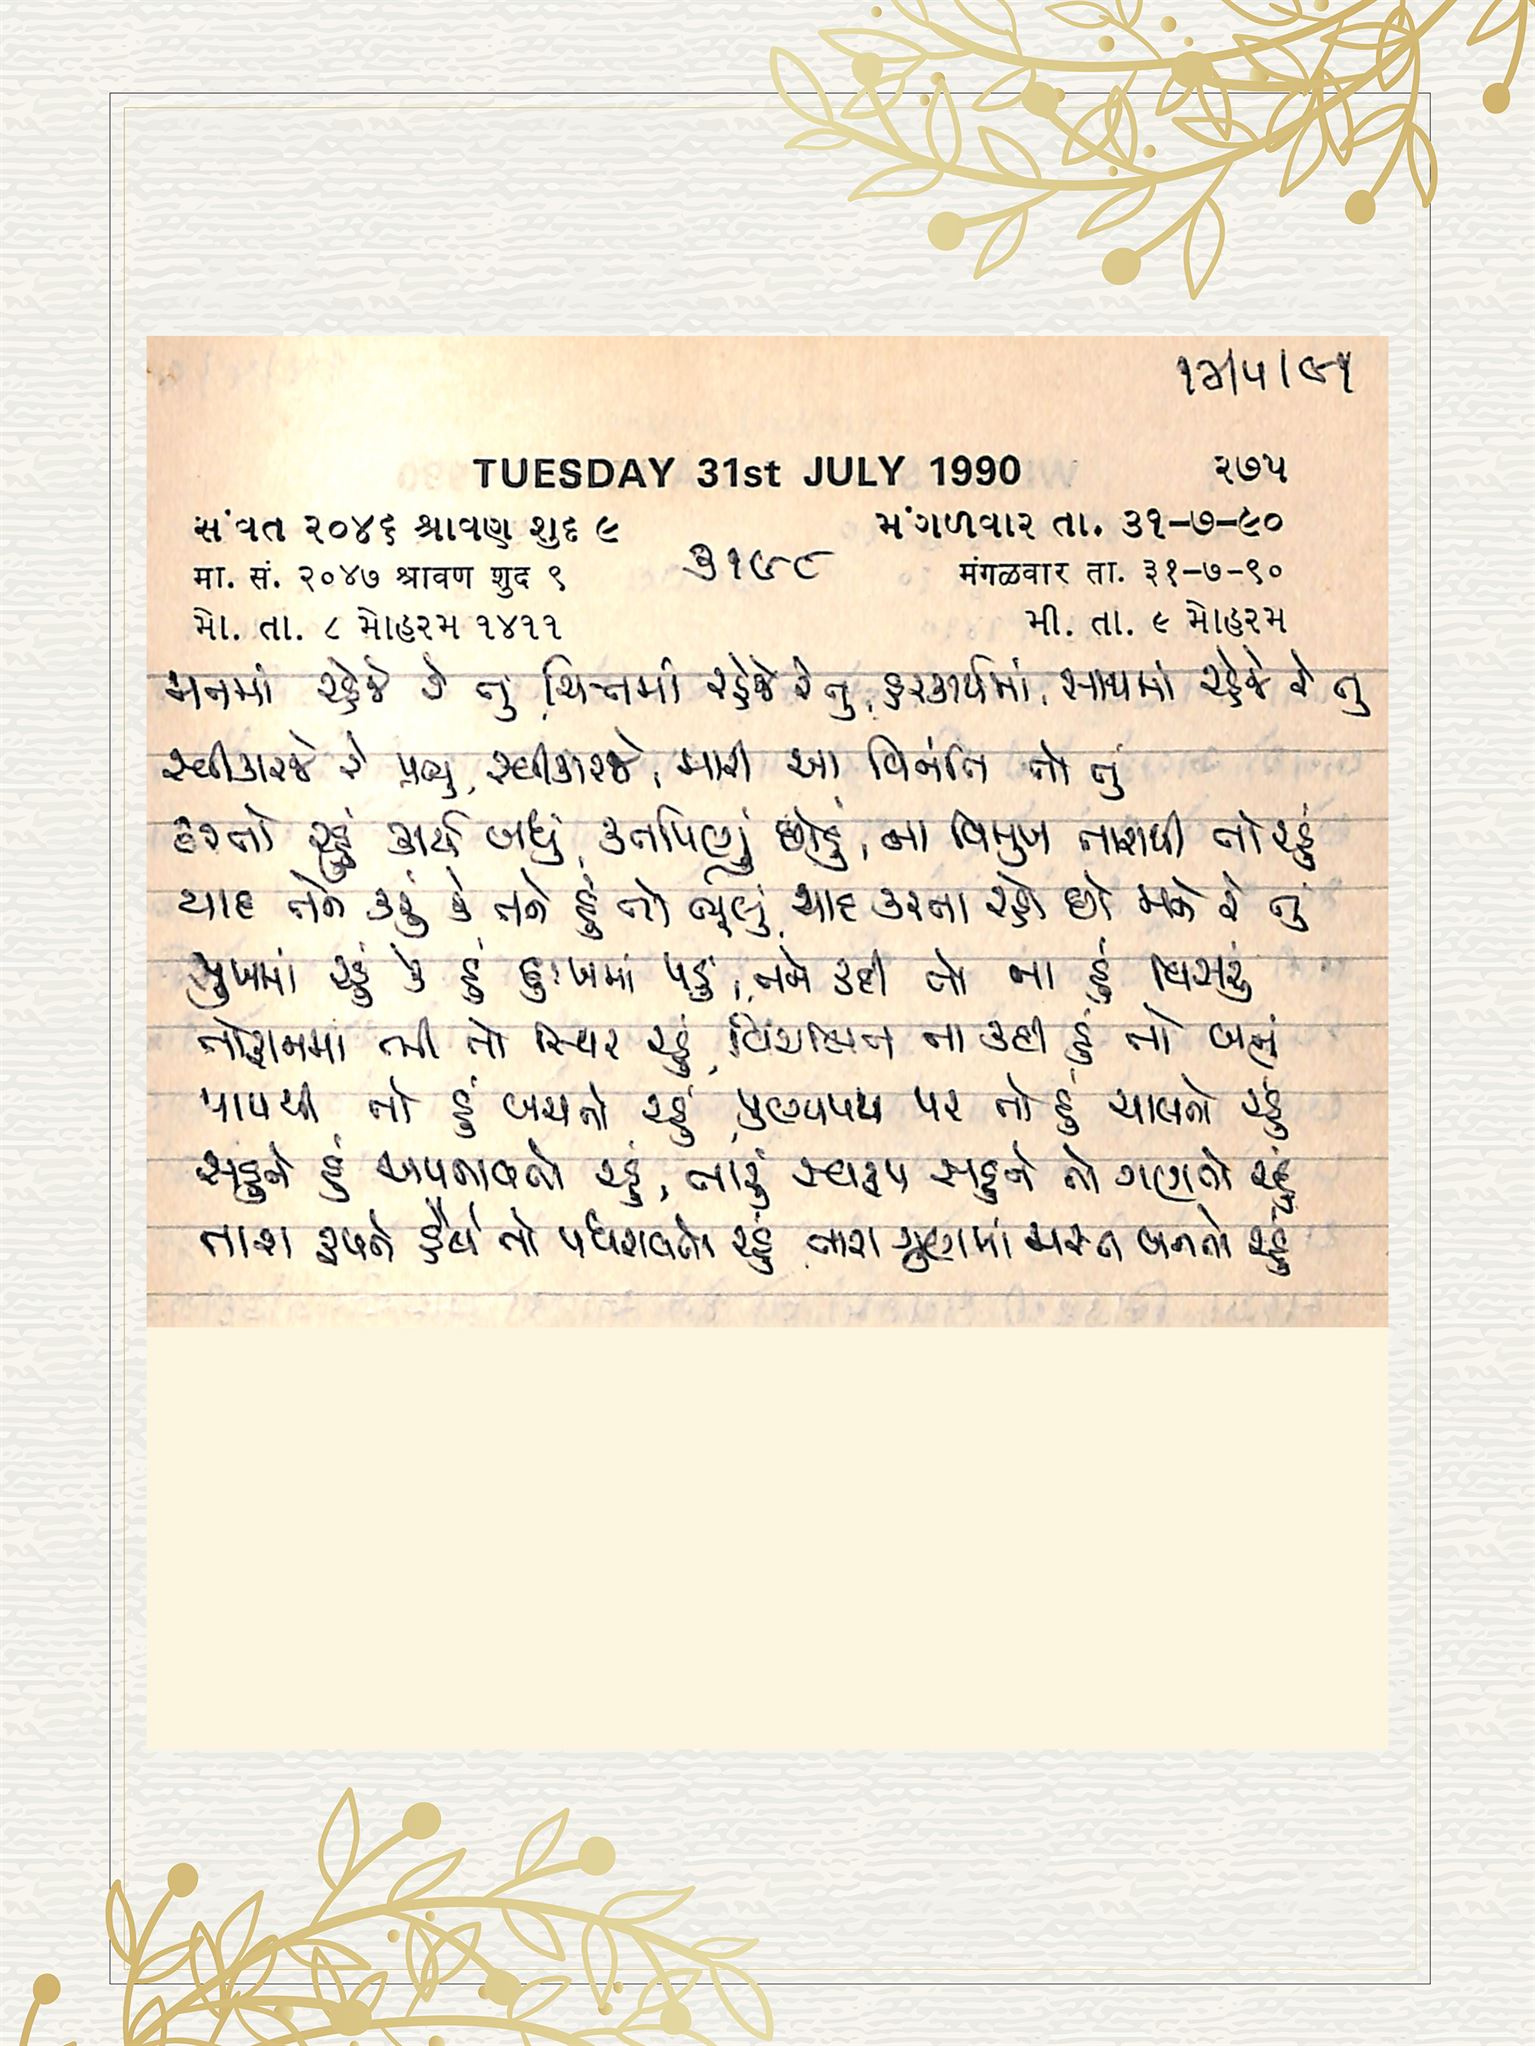 ૧૩/૫/૯૧
TUESDAY 31st JULY 1990 ૨૭૫
સંવત ૨૦૪૬ શ્રાવણ શુદ ૯ મંગળવાર તા. ૩૧-૭-૯૦
૩૧૯૮
मा. सं. २०४७ श्रावण शुद ९ मंगळवार ता. ३१-७-९०
મો. તા. ૮ મોહરમ ૧૪૧૧ મી. તા. ૯ મોહરમ
મનમાં રહેજે રે તુ, ચિત્તમાં રહેજે રે તુ, હરકાર્યમાં, સાથમાં રહેજે રે તુ
સ્વીકારજે રે પ્રભુ, સ્વીકારજે, મારી આ વિનંતિ તો તું
કરતો રહું કાર્ય બધું, છોડું, ના વિમુખ તારાથી તો રહું
યાદ તને કરું કે તને હું તો ભૂલું, યાદ કરતા રહો છો મને રે તું
સુખમાં રહું કે હું દુઃખમાં પડું, તને કદી તો ના હું વિસરું
તોફાનમાં ભી તો સ્થિર રહું, વિચલિત ના કદી હું તો બનું
પાપથી તો હું બચતો રહું, પુણ્યપથ પર તો હું ચાલતો રહું
સહુને હું અપનાવતો રહું, તારું સ્વરૂપ સહુને તો ગણતો રહું
તારા રૂપને હૈયે તો પધરાવતો રહું, તારા ગુણમાં મસ્ત બનતો રહું